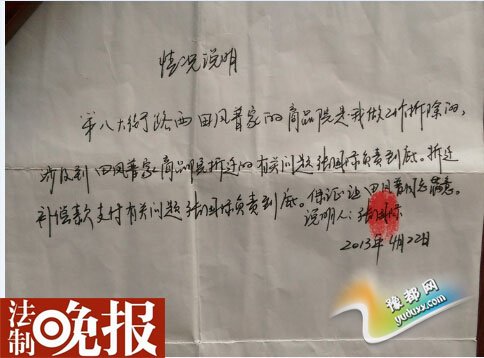 情况说明
第八大街路西田风普家的商品院是我做工作拆除的,
涉及到田风普家商品院拆迁的有关问题张 负责到底。拆迁
补偿款支付有关问题张 负责到底。保证让田风普 满意。
说明人:张
2013年4月22日
法制晚报
豫都网
yuduxx.com